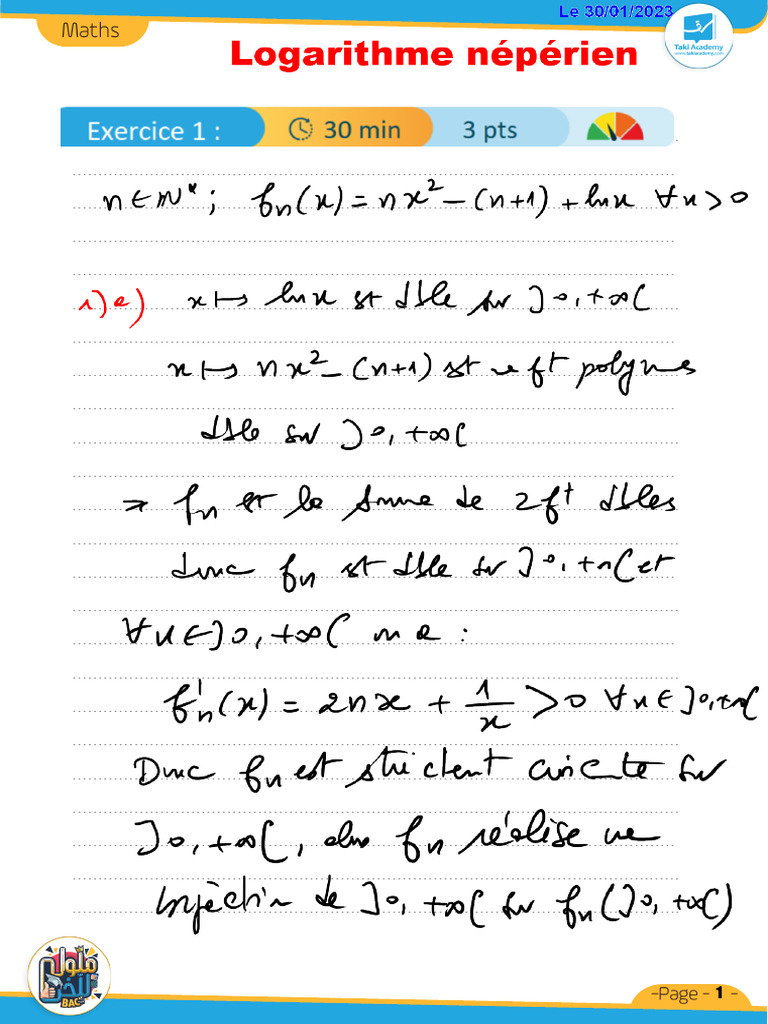 Le 30/01/2023
Maths
Taki Academy
www.takiacademy.com
Logarithme népérien
Exercice 1 :
30 min
3 pts
n ∈ ℕ*; fₙ(x) = nx² − (n+1) + lnx ∀x > 0
1) a) x ↦ lnx est dble sur ]0, +∞[
x ↦ nx² − (n+1) est ue fᵗ polynes
dble sur ]0, +∞[
⇒ fₙ est la somme de 2fᵗ dbles
donc fₙ est dble sur ]0, +∞[ et
∀x ∈ ]0, +∞[ on a :
fₙ'(x) = 2nx + 1/x > 0 ∀x ∈ ]0, +∞[
Donc fₙ est strictent croisste sur
]0, +∞[, alors fₙ réalise une
bijection de ]0, +∞[ sur fₙ(]0, +∞[)
BAC
–Page – 1 –